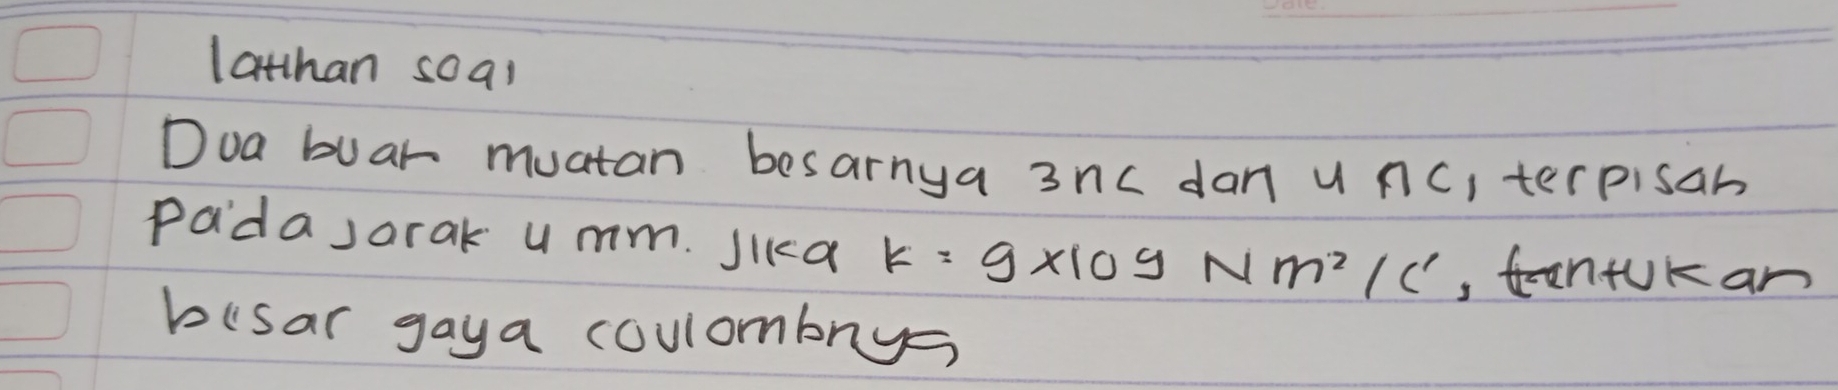 Date.
latihan soal
Dua buah muatan besarnya 3nc dan 4 nc, terpisah
pada jarak 4 mm. Jika k = 9x109 Nm²/C', tentukan
besar gaya coulombnya